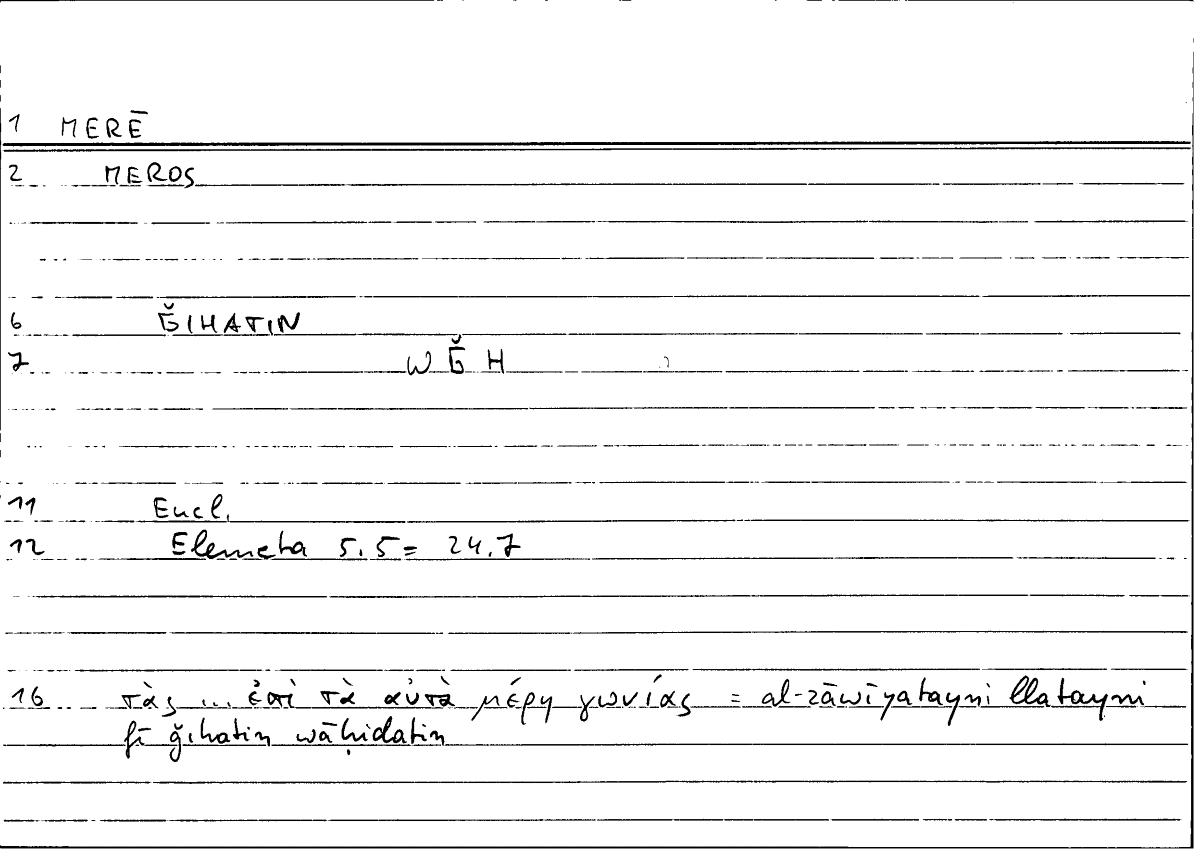 1 MERĒ
2 MEROS
6 ǦIHATIN
7 W Ǧ H
11 Eucl.
12 Elementa 5.5 = 24.7
16 τὰς ... ἐπὶ τὰ αὐτὰ μέρη γωνίας = al-zāwīyatayni llatayni
fī ǧihatin wāḥidatin